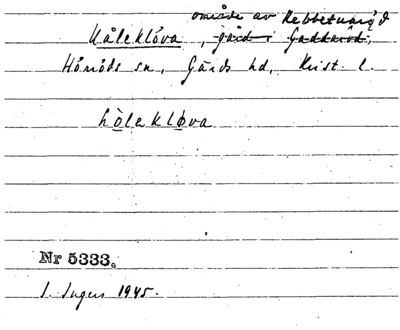 område av Rebbetuaröd
Håleklöva, gård i Gaddaröd,
Hörröds sn, Gärds hd, Krist. l.
hòlekløva
Nr 5333.
I. Ingers 1945.